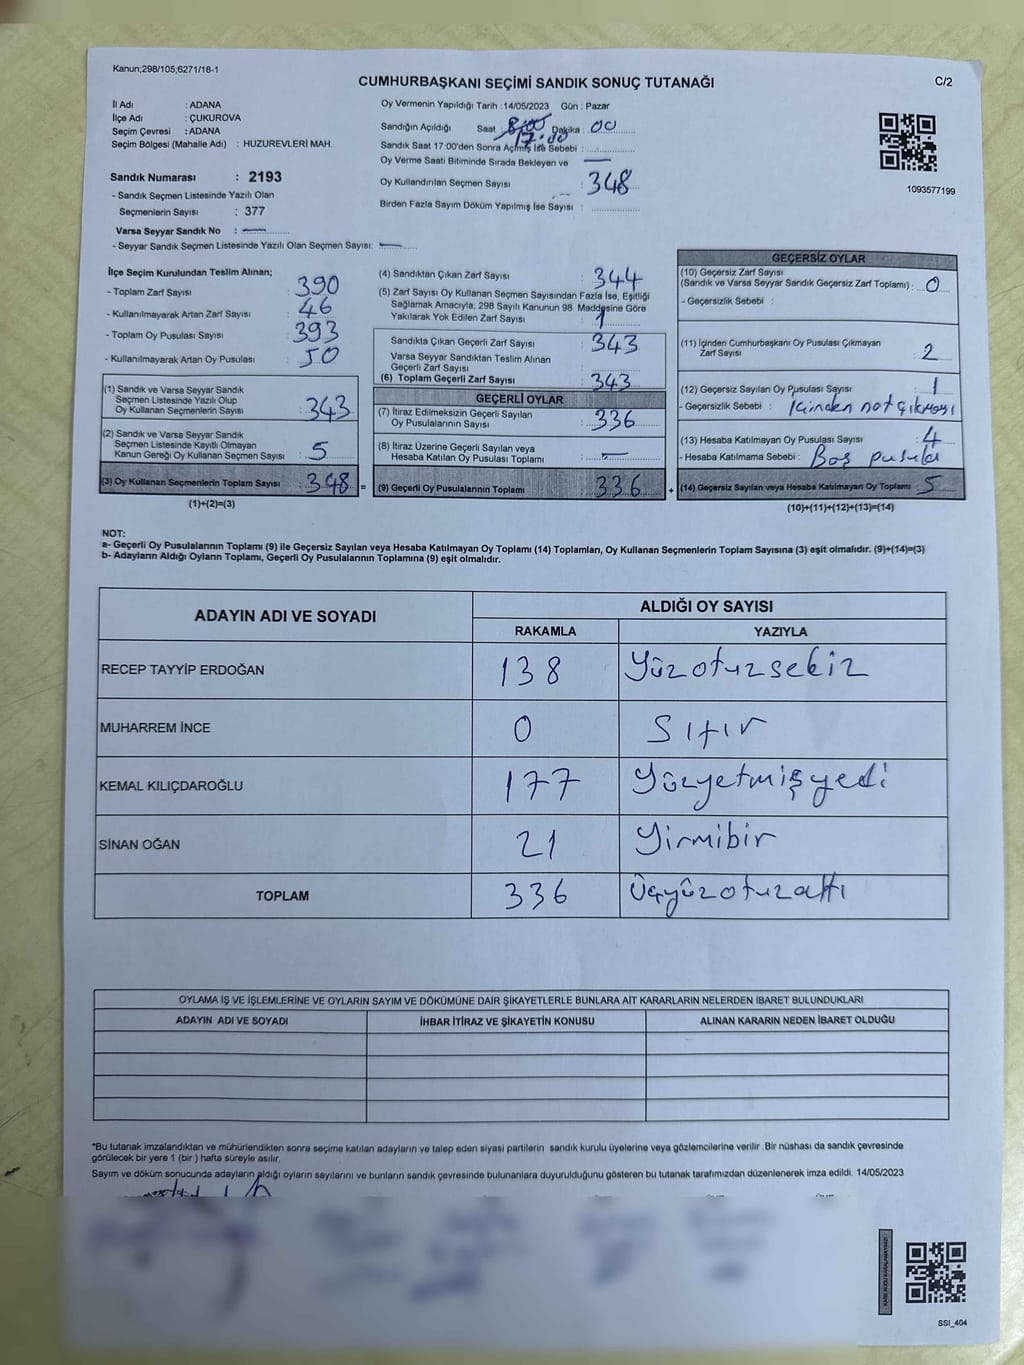 Kanun;298/105;6271/18-1
CUMHURBAŞKANI SEÇİMİ SANDIK SONUÇ TUTANAĞI
C/2
İl Adı : ADANA
İlçe Adı : ÇUKUROVA
Seçim Çevresi : ADANA
Seçim Bölgesi (Mahalle Adı) : HUZUREVLERİ MAH.
Sandık Numarası : 2193
- Sandık Seçmen Listesinde Yazılı Olan
Seçmenlerin Sayısı : 377
Varsa Seyyar Sandık No : —
- Seyyar Sandık Seçmen Listesinde Yazılı Olan Seçmen Sayısı: —
Oy Vermenin Yapıldığı Tarih : 14/05/2023 Gün : Pazar
Sandığın Açıldığı Saat : 8:00 Dakika : 00
17:00
Sandık Saat 17:00'den Sonra Açılmış İse Sebebi :
Oy Verme Saati Bitiminde Sırada Bekleyen ve —
Oy Kullandırılan Seçmen Sayısı : 348
Birden Fazla Sayım Döküm Yapılmış İse Sayısı :
1093577199
İlçe Seçim Kurulundan Teslim Alınan;
- Toplam Zarf Sayısı : 390
- Kullanılmayarak Artan Zarf Sayısı : 46
- Toplam Oy Pusulası Sayısı : 393
- Kullanılmayarak Artan Oy Pusulası : 50
(1) Sandık ve Varsa Seyyar Sandık
Seçmen Listesinde Yazılı Olup
Oy Kullanan Seçmenlerin Sayısı : 343
(2) Sandık ve Varsa Seyyar Sandık
Seçmen Listesinde Kayıtlı Olmayan
Kanun Gereği Oy Kullanan Seçmen Sayısı : 5
(3) Oy Kullanan Seçmenlerin Toplam Sayısı : 348 =
(1)+(2)=(3)
(4) Sandıktan Çıkan Zarf Sayısı : 344
(5) Zarf Sayısı Oy Kullanan Seçmen Sayısından Fazla İse, Eşitliği
Sağlamak Amacıyla; 298 Sayılı Kanunun 98. Maddesine Göre
Yakılarak Yok Edilen Zarf Sayısı : 1
Sandıkta Çıkan Geçerli Zarf Sayısı : 343
Varsa Seyyar Sandıktan Teslim Alınan
Geçerli Zarf Sayısı :
(6) Toplam Geçerli Zarf Sayısı : 343
GEÇERLİ OYLAR
(7) İtiraz Edilmeksizin Geçerli Sayılan
Oy Pusulalarının Sayısı : 336
(8) İtiraz Üzerine Geçerli Sayılan veya
Hesaba Katılan Oy Pusulası Toplamı : —
(9) Geçerli Oy Pusulalarının Toplamı : 336 +
GEÇERSİZ OYLAR
(10) Geçersiz Zarf Sayısı
(Sandık ve Varsa Seyyar Sandık Geçersiz Zarf Toplamı) : 0
- Geçersizlik Sebebi :
(11) İçinden Cumhurbaşkanı Oy Pusulası Çıkmayan
Zarf Sayısı : 2
(12) Geçersiz Sayılan Oy Pusulası Sayısı : 1
- Geçersizlik Sebebi : içinden not çıkması
(13) Hesaba Katılmayan Oy Pusulası Sayısı : 4
- Hesaba Katılmama Sebebi : Boş pusula
(14) Geçersiz Sayılan veya Hesaba Katılmayan Oy Toplamı : 5
(10)+(11)+(12)+(13)=(14)
NOT:
a- Geçerli Oy Pusulalarının Toplamı (9) ile Geçersiz Sayılan veya Hesaba Katılmayan Oy Toplamı (14) Toplamları, Oy Kullanan Seçmenlerin Toplam Sayısına (3) eşit olmalıdır. (9)+(14)=(3)
b- Adayların Aldığı Oyların Toplamı, Geçerli Oy Pusulalarının Toplamına (9) eşit olmalıdır.
ADAYIN ADI VE SOYADI
ALDIĞI OY SAYISI
RAKAMLA YAZIYLA
RECEP TAYYİP ERDOĞAN 138 Yüzotuzsekiz
MUHARREM İNCE 0 Sıfır
KEMAL KILIÇDAROĞLU 177 Yüzyetmişyedi
SİNAN OĞAN 21 Yirmibir
TOPLAM 336 Üçyüzotuzaltı
OYLAMA İŞ VE İŞLEMLERİNE VE OYLARIN SAYIM VE DÖKÜMÜNE DAİR ŞİKAYETLERLE BUNLARA AİT KARARLARIN NELERDEN İBARET BULUNDUKLARI
ADAYIN ADI VE SOYADI İHBAR İTİRAZ VE ŞİKAYETİN KONUSU ALINAN KARARIN NEDEN İBARET OLDUĞU
*Bu tutanak imzalandıktan ve mühürlendikten sonra seçime katılan adayların ve talep eden siyasi partilerin sandık kurulu üyelerine veya gözlemcilerine verilir .Bir nüshası da sandık çevresinde
görülecek bir yere 1 (bir ) hafta süreyle asılır.
Sayım ve döküm sonucunda adayların aldığı oyların sayılarını ve bunların sandık çevresinde bulunanlara duyurulduğunu gösteren bu tutanak tarafımızdan düzenlenerek imza edildi. 14/05/2023
SSI_404